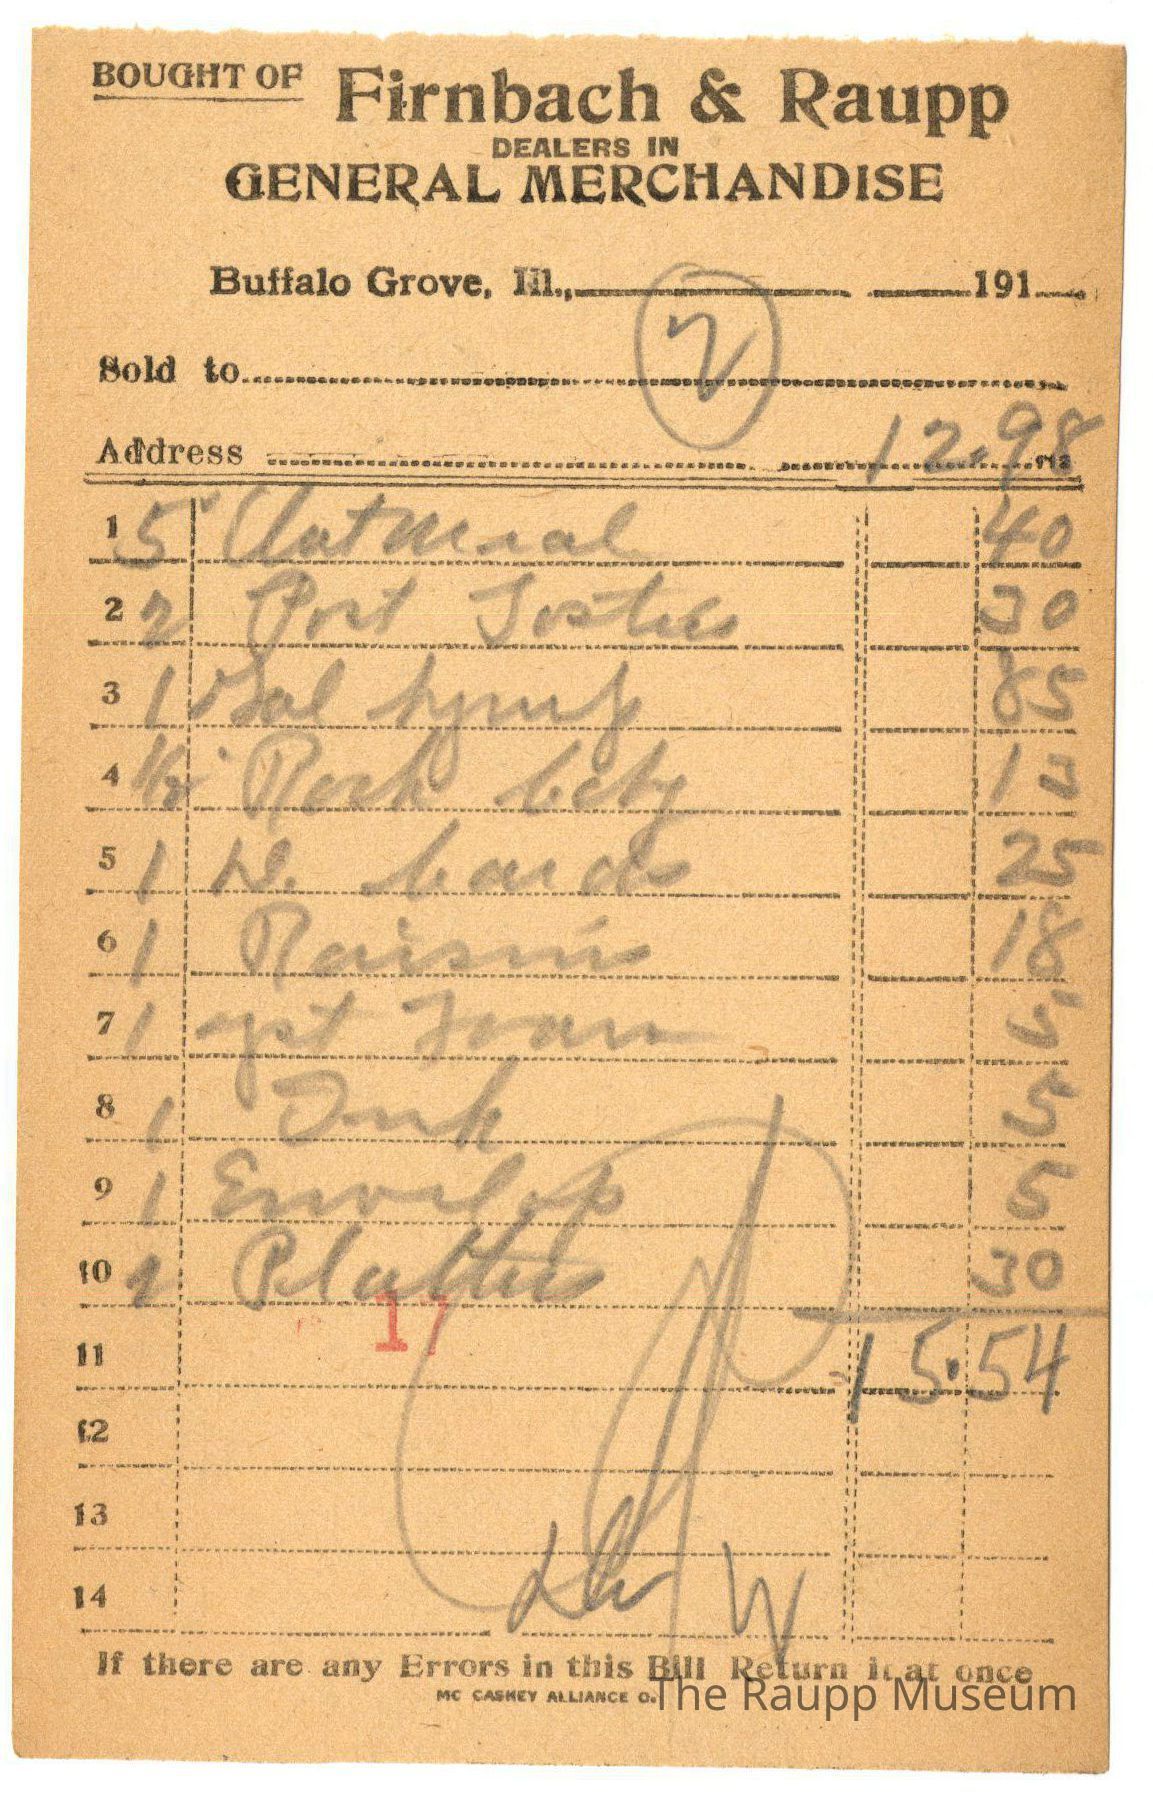 BOUGHT OF Firnbach & Raupp
DEALERS IN
GENERAL MERCHANDISE
Buffalo Grove, Ill., 191
2
Sold to
Address 12.98
1 5 Oatmeal 40
2 2 Post Tosties 30
3 1 Gal Syrup 85
4 1/2 Rock 13
5 1 cards 25
6 1 Raisins 18
7 1 yst Foam 5
8 1 Ink 5
9 1 Envelop 5
10 2 Platters 30
17
11 15.54
12
13
14
If there are any Errors in this Bill Return it at once
MC CASKEY ALLIANCE O.
The Raupp Museum